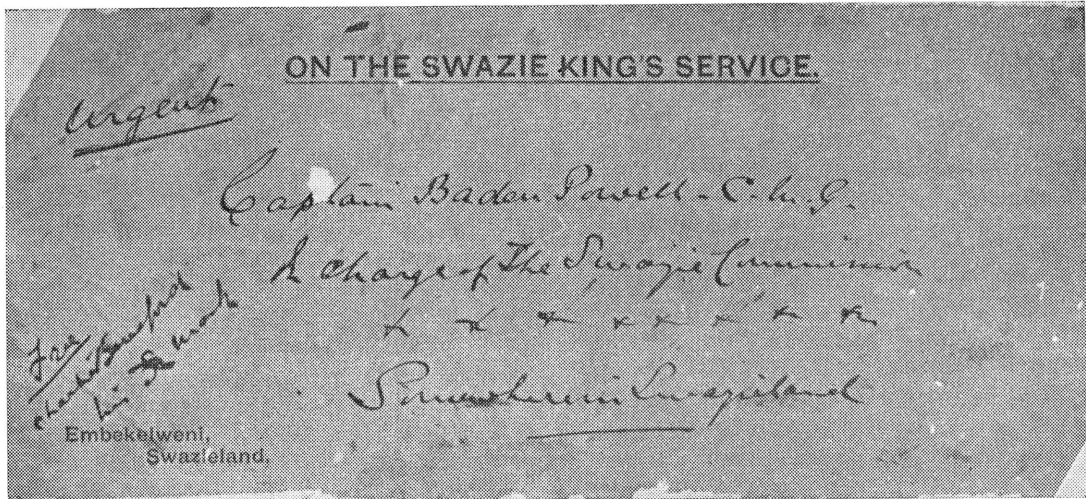 ON THE SWAZIE KING'S SERVICE.
Urgent
Captain Baden Powell - C.M.G.
In charge of The Swazie Commission
x x x x x x x x
Somewhere in Swazieland
Free
his mark
Embekelweni,
Swazieland,